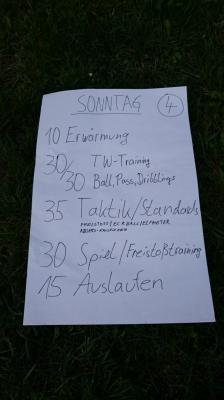 SONNTAG 4
10 Erwärmung
30/ TW-Training
30 Ball, Pass, Dribblings
35 Taktik/Standards
FREISTOSS/ECKBALL/ELFMETER
30 Spiel/Freistoßtraining
15 Auslaufen